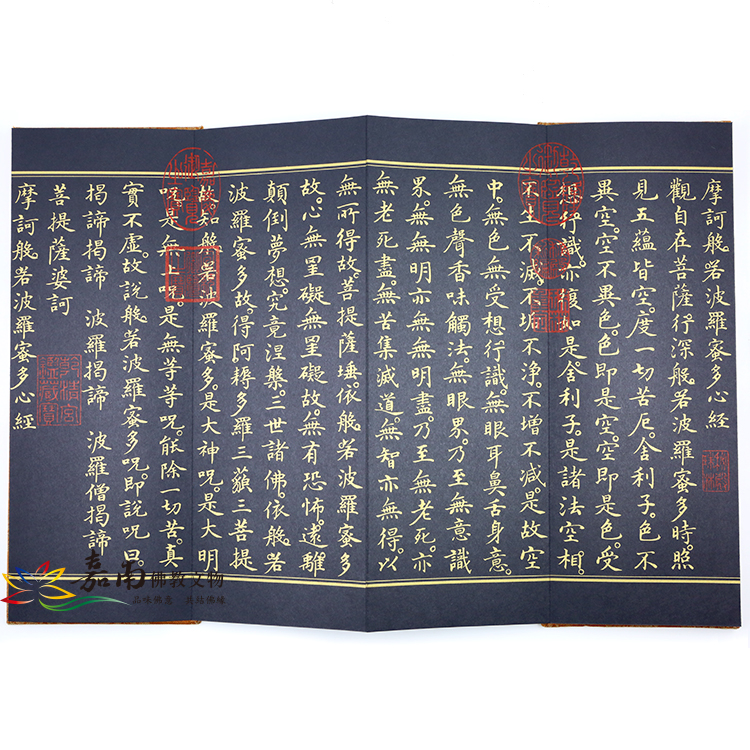 摩訶般若波羅蜜多心經
觀自在菩薩。行深般若波羅蜜多時。照
見五蘊皆空。度一切苦厄。舍利子。色不
異空。空不異色。色即是空。空即是色。受
想行識。亦復如是。舍利子。是諸法空相。
不生不滅。不垢不淨。不增不減。是故空
中。無色。無受想行識。無眼耳鼻舌身意。
無色聲香味觸法。無眼界。乃至無意識
界。無無明。亦無無明盡。乃至無老死。亦
無老死盡。無苦集滅道。無智亦無得。以
無所得故。菩提薩埵。依般若波羅蜜多
故。心無罣礙。無罣礙故。無有恐怖。遠離
顛倒夢想。究竟涅槃。三世諸佛。依般若
波羅蜜多故。得阿耨多羅三藐三菩提
故。知般若波羅蜜多。是大神呪。是大明
呪。是無上呪。是無等等呪。能除一切苦。真
實不虛。故說般若波羅蜜多呪。即說呪曰
揭諦揭諦 波羅揭諦 波羅僧揭諦
菩提薩婆訶
摩訶般若波羅蜜多心經
嘉南佛教文物
品味佛意 共結佛緣